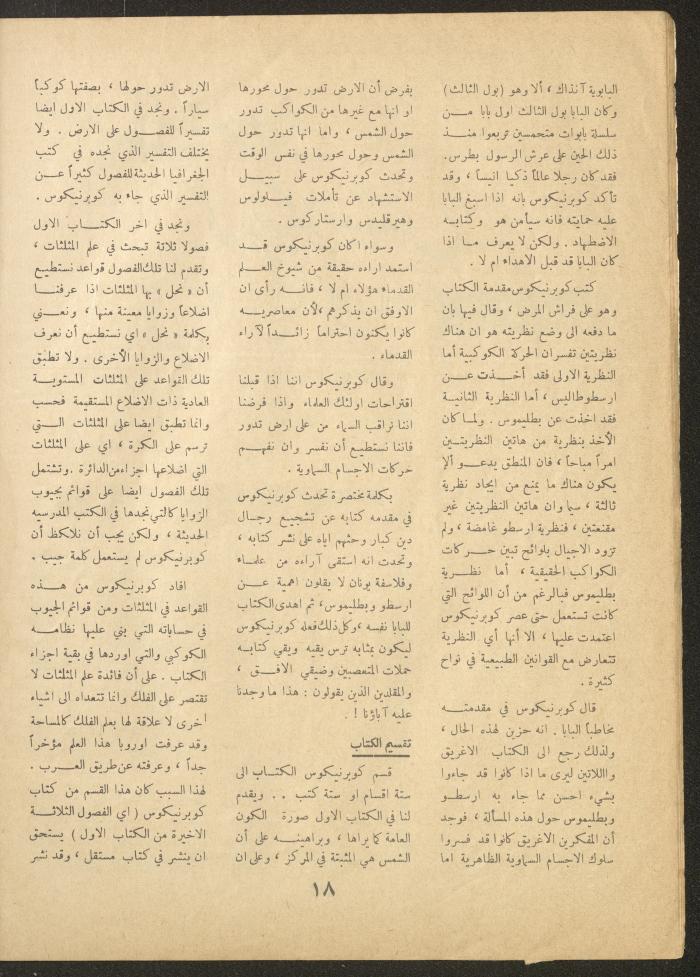 البابوية آنذاك ، ألا وهو (بول الثالث)
وكان البابا بول الثالث اول بابا مـــن
سلسلة بابوات متحمسين تربعوا منــذ
ذلك الحين على عرش الرسول بطرس.
فقد كان رجلا عالماً ذكيا انيسا ، وقد
تأكد كوبرنيكوس بانه اذا اسبغ البابا
عليه حمايته فانه سيأمن هو وكتابــه
الاضطهاد . ولكن لا يعرف مــا اذا
كان البابا قد قبل الاهداء ام لا .
كتب كوبرنيكوس مقدمة الكتاب
وهو على فراش المرض ، وقال فيها بان
ما دفعه الى وضع نظريته هو ان هناك
نظريتين تفسران الحركة الكوكبية أما
النظرية الاولى فقد أخــذت عــن
ارسطوطاليس ، أما النظرية الثانيــة
فقد اخذت عن بطليموس . ولمـا كان
الأخذ بنظرية من هاتين النظريتــين
امراً مباحاً ، فان المنطق يدعــو ألا
يكون هناك ما يمنع من ايجاد نظرية
ثالثة ، سيما وان هاتين النظريتين غير
مقنعتين ، فنظرية ارسطو غامضة ، ولم
تزود الاجيال بلوائح تبين حــركات
الكواكب الحقيقية ، أما نظــرية
بطليموس فبالرغم من أن اللوائح التي
كانت تستعمل حتى عصر كوبرنيكوس
اعتمدت عليها ، الا أنها أي النظرية
تتعارض مع القوانين الطبيعية في نواح
كثيرة .
قال كوبرنيكوس في مقدمتــه
مخاطباً البابا . انه حزين لهذه الحال ،
ولذلك رجع الى الكتاب الاغريق
واللاتين ليرى ما اذا كانوا قد جاءوا
بشيء احسن مما جاء به ارسطــو
وبطليموس حول هذه المسألة ، فوجد
أن المفكرين الاغريق كانوا قد فسروا
سلوك الاجسام السماوية الظاهرية اما
بفرض أن الارض تدور حول محورها
او انها مع غيرها من الكواكب تدور
حول الشمس ، واما انها تدور حول
الشمس وحول محورها في نفس الوقت
وتحدث كوبرنيكوس على سبيــل
الاستشهاد عن تأملات فيلولوس
وهيرقليدس وارستاركوس .
وسواء اكان كوبرنيكوس قــد
استمد اراءه حقيقة من شيوخ العلـم
القدماء هؤلاء ام لا ، فانــه رأى ان
الاوفق ان يذكرهم ،لأن معاصريــه
كانوا يكنون احتراماً زائــداً لآراء
القدماء .
وقال كوبرنيكوس اننا اذا قبلنا
اقتراحات اولئك العلماء واذا فرضنا
اننا نراقب السماء من على ارض تدور
فاننا نستطيع أن نفسر وان نفهــم
حركات الاجسام السماوية .
بكلمة مختصرة تحدث كوبرنيكوس
في مقدمه كتابه عن تشجيع رجــال
دين كبار وحثهم اياه على نشر كتابه ،
وتحدث انه استقى آراءه من علمـاء
وفلاسفة يونان لا يقلون اهمية عــن
ارسطو وبطليموس، ثم اهدى الكتاب
للبابا نفسه ،وكل ذلك فعله كوبرنيكوس
ليكون بمثابه ترس يقيه ويقي كتابــه
حملات المتعصبين وضيقي الافــق ،
والمقلدين الذين يقولون : هذا ما وجدنا
عليه آباؤنا ! .
تقسيم الكتاب
قسم كوبرنيكوس الكتــاب الى
ستة اقسام او ستة كتب . . ويقدم
لنا في الكتاب الاول صورة الكون
العامة كما يراها ، وبراهينــه على أن
الشمس هي المثبتة في المركز ، وعلى ان
الارض تدور حولها ، بصفتها كوكباً
سياراً . ونجد في الكتاب الاول ايضا
تفسيراً للفصــول على الارض . ولا
يختلف التفسير الذي نجده في كتب
الجغرافيا الحديثة للفصول كثيراً عــن
التفسير الذي جاء به كوبرنيكوس .
ونجد في اخر الكتــاب الاول
فصولا ثلاثة تبحث في علم المثلثات ،
وتقدم لنا تلك الفصول قواعد نستطيـع
أن « نحل » بها المثلثات اذا عرفنــا
اضلاعاً وزوايا معينة منها ، ونعــني
بكلمة « نحل » اي نستطيع أن نعرف
الاضلاع والزوايا الأخرى . ولا تطبق
تلك القواعد على المثلثات المستويــة
العادية ذات الاضلاع المستقيمة فحسب
وانما تطبق ايضا على المثلثات الــتي
ترسم على الكرة ، اي على المثلثات
التي اضلاعها اجزاء من الدائرة .وتشتمل
تلك الفصول ايضا على قوائم بجيوب
الزوايا كالتي نجدها في الكتب المدرسيه
الحديثة ، ولكن يجب أن نلاحظ أن
كوبرنيكوس لم يستعمل كلمة جيب .
افاد كوبرنيكوس من هــذه
القواعد في المثلثات ومن قوائم الجيوب
في حساباته التي بني عليها نظامــه
الكوكبي والتي اوردها في بقية اجزاء
الكتاب . على أن فائدة علم المثلثات لا
تقتصر على الفلك وانما تتعداه الى اشياء
اخرى لا علاقة لها بعلم الفلك كالمساحة
وقد عرفت اوروبا هذا العلم مؤخراً
جداً ، وعرفته عن طريق العــرب .
لهذا السبب كان هذا القسم من كتاب
كوبرنيكوس ( اي الفصول الثلاثــة
الاخيرة من الكتاب الاول ) يستحق
ان ينشر في كتاب مستقل ، وقد نشر
١٨